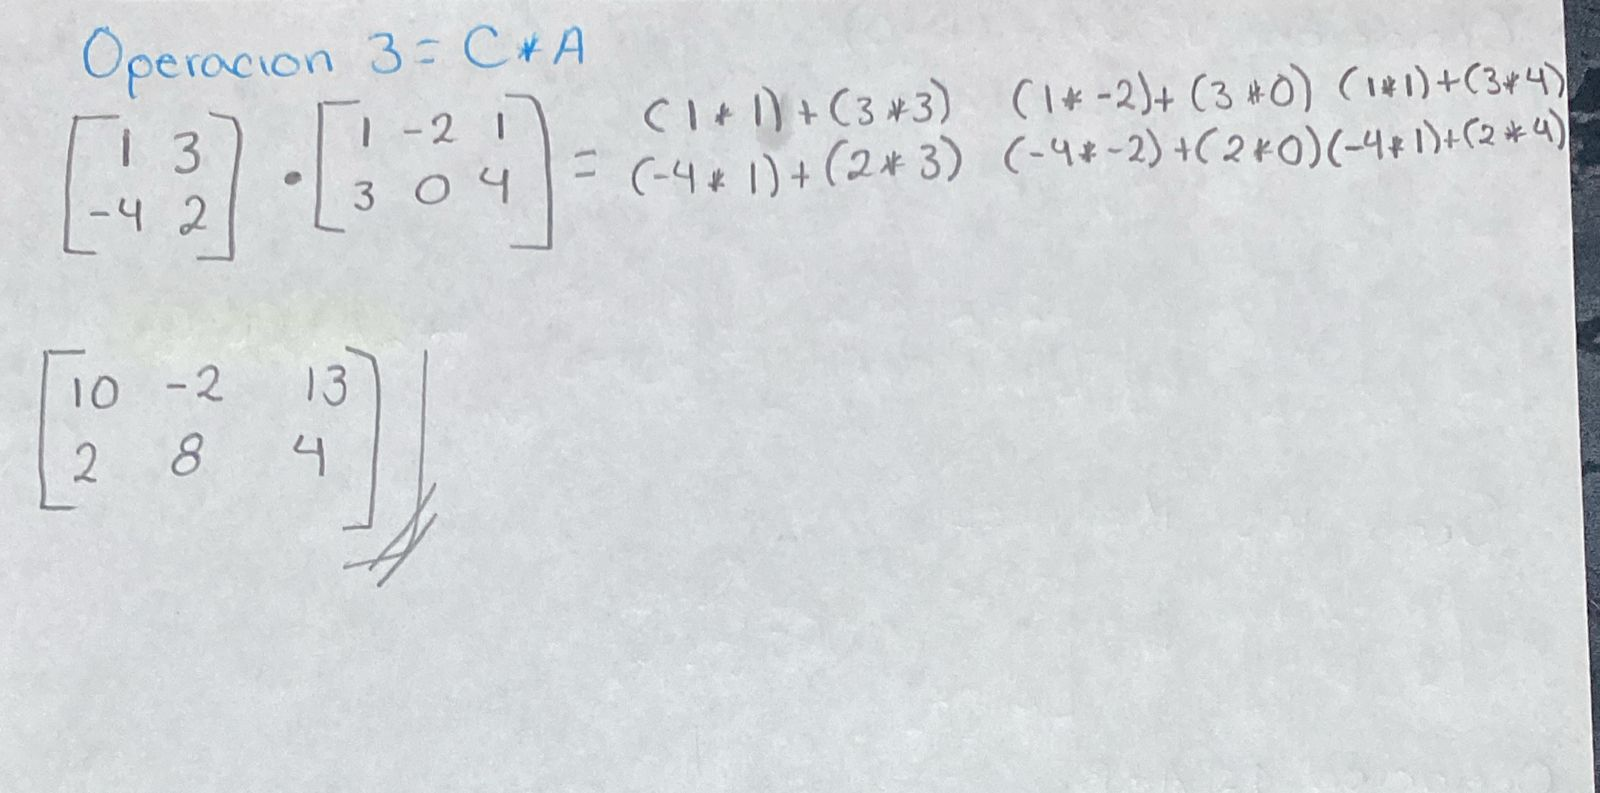 Operacion 3 = C * A
[1 3] · [1 -2 1] = (1 * 1) + (3 * 3) (1 * -2) + (3 * 0) (1 * 1) + (3 * 4)
[-4 2] [3 0 4] (-4 * 1) + (2 * 3) (-4 * -2) + (2 * 0) (-4 * 1) + (2 * 4)
[10 -2 13]
[2 8 4]